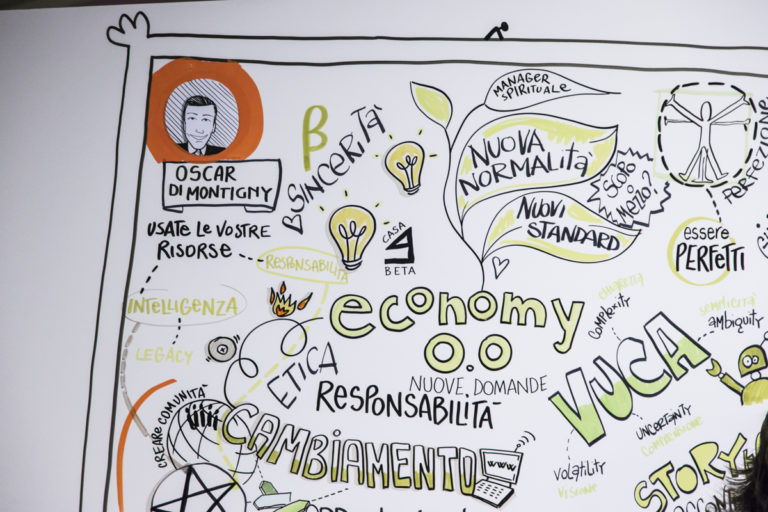 OSCAR
DI MONTIGNY
USATE LE VOSTRE
RISORSE
RESPONSABILITÀ
INTELLIGENZA
LEGACY
β
BSINCERITÀ
CASA
BETA
MANAGER
SPIRITUALE
NUOVA
NORMALITÀ
NUOVI
STANDARD
SCOPO
MEZZO!
PERFEZIONE
essere
PERFETTI
economy
0.0
NUOVE DOMANDE
ETICA
RESPONSABILITÀ
CREARE COMUNITÀ
CAMBIAMENTO
WWW
chiarezza
complexity
semplicità
ambiguity
VUCA
UNCERTAINTY
COMPRENSIONE
VOLATILITY
VISIONE
STORY